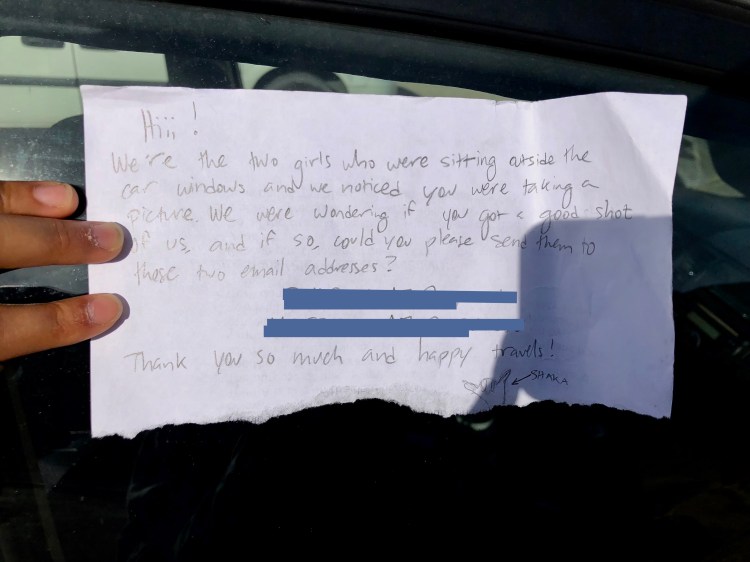 Hiii !
We're the two girls who were sitting outside the
car windows and we noticed you were taking a
picture. We were wondering if you got a good shot
of us, and if so, could you please send them to
those two email addresses?
Thank you so much and happy travels!
SHAKA